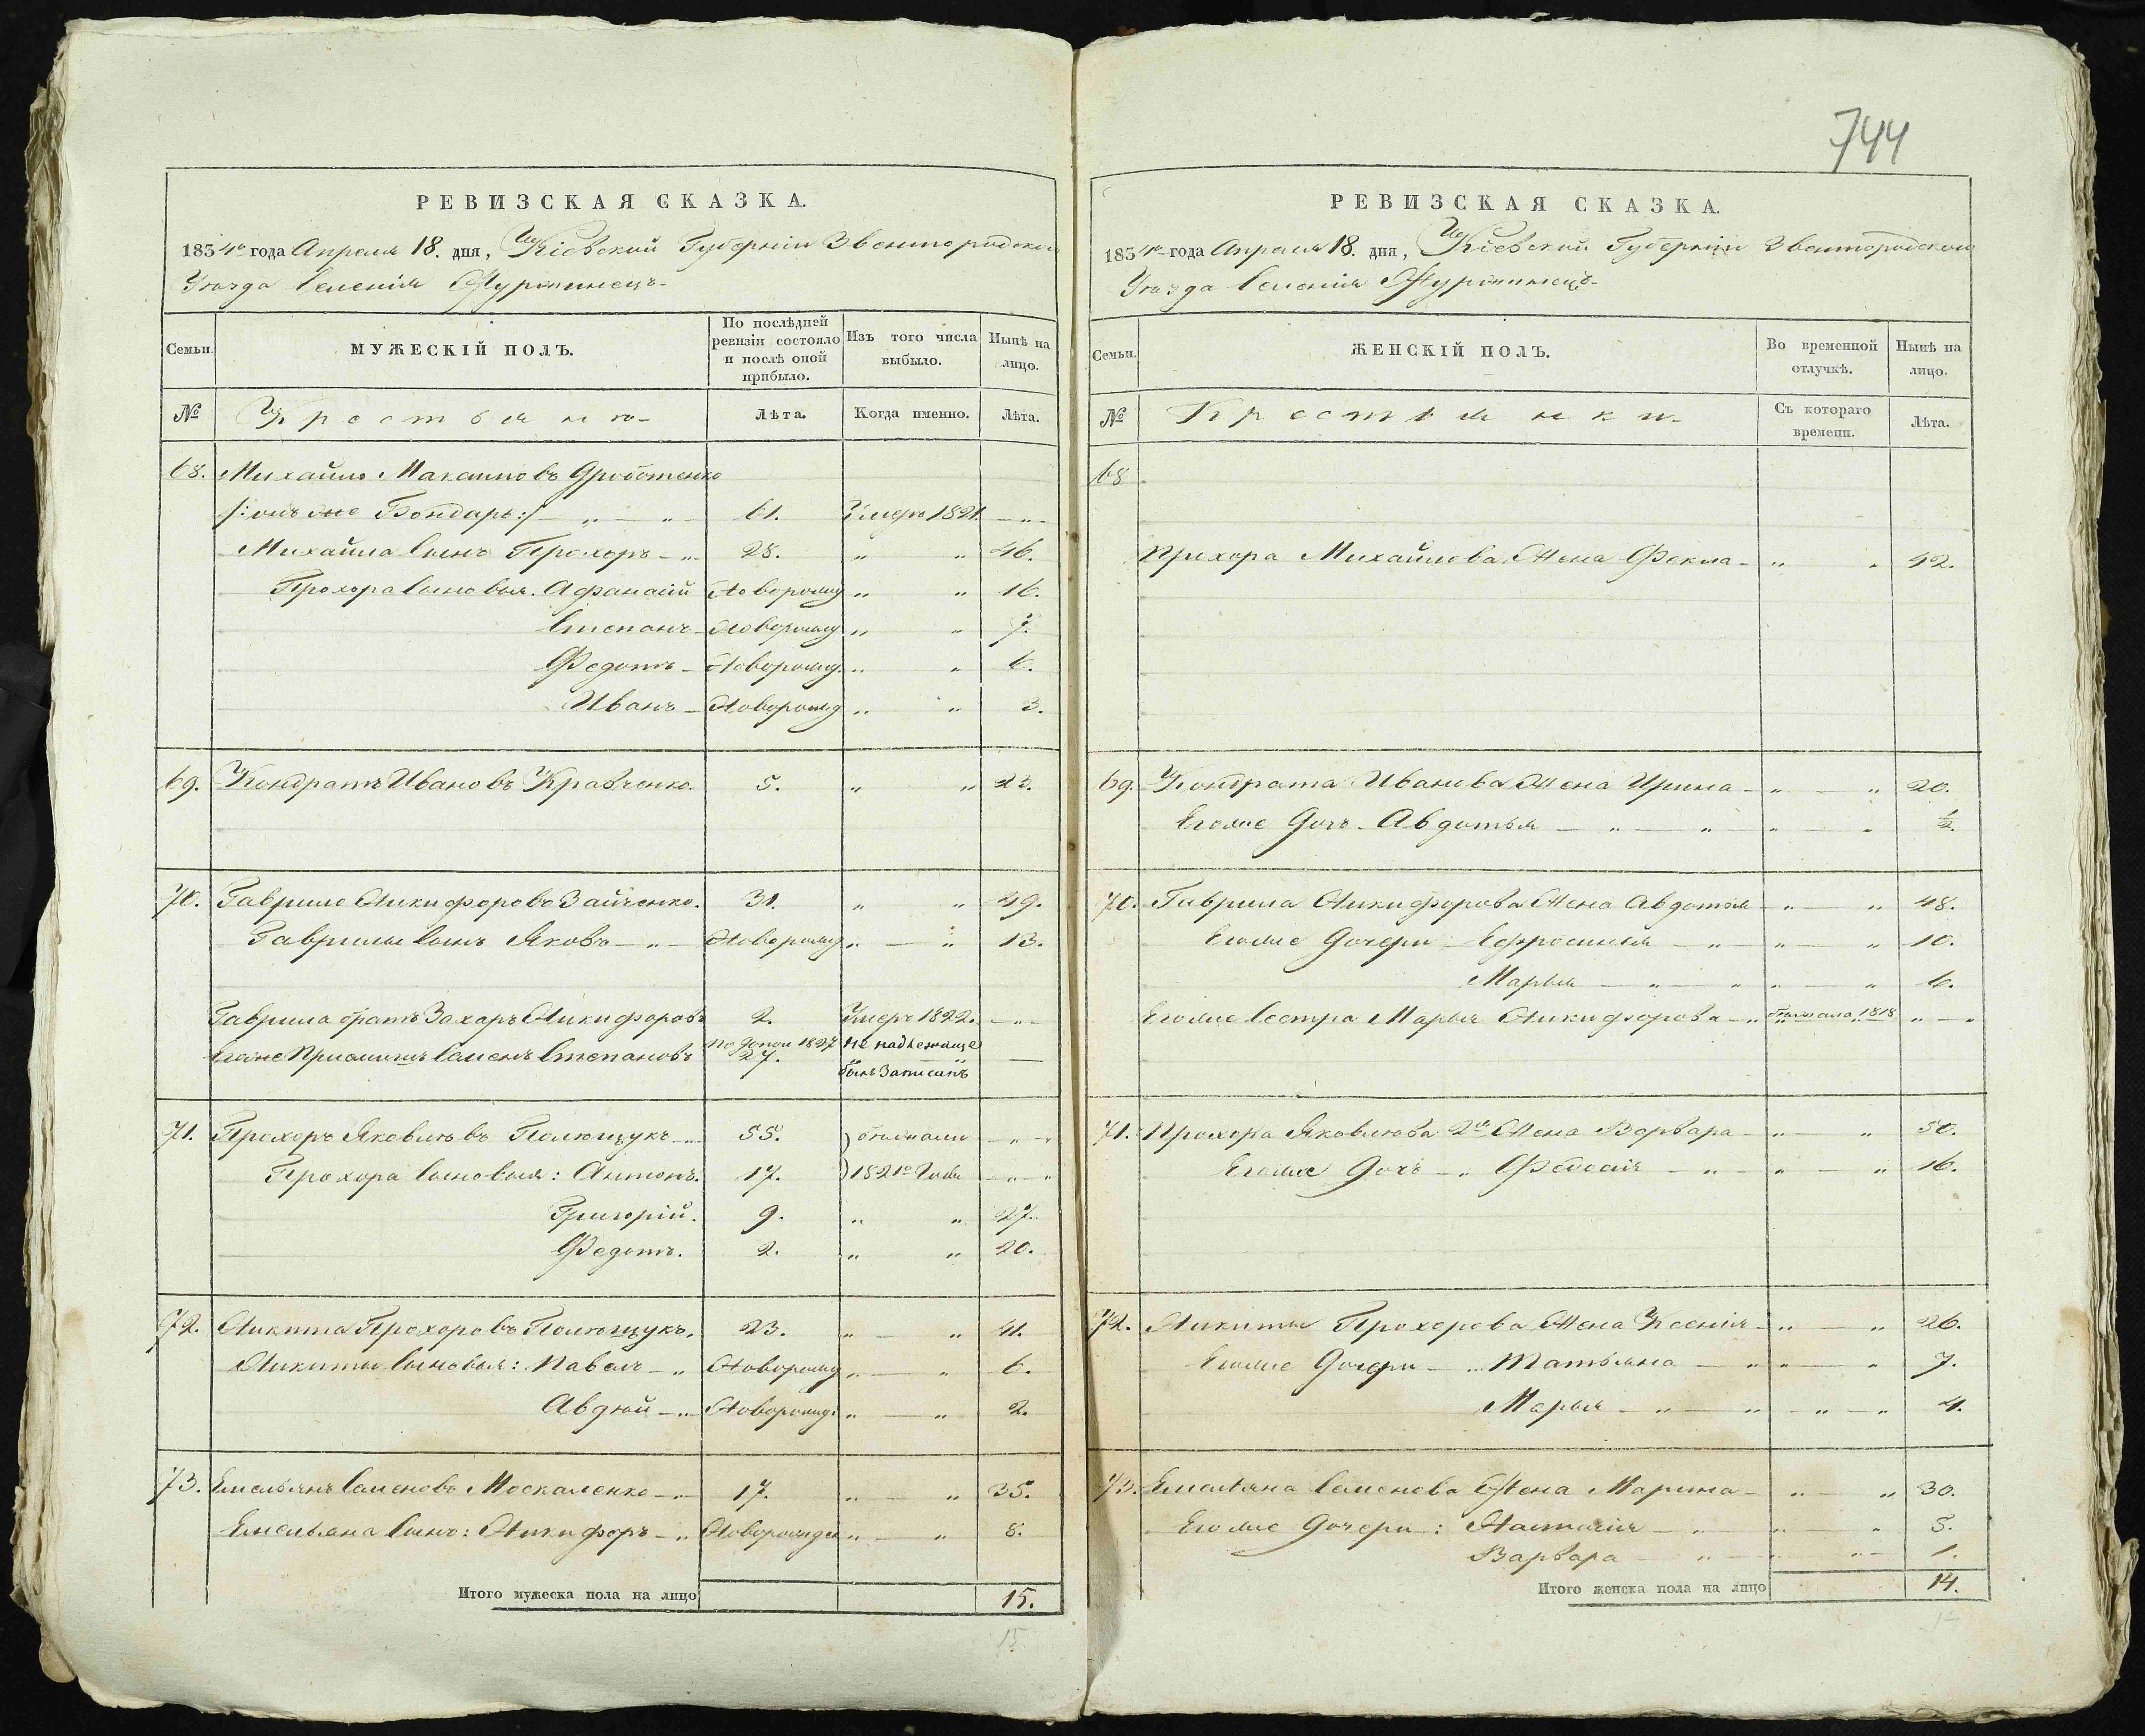 744
РЕВИЗСКАЯ СКАЗКА.
1834го года Апреля 18. дня, Кіевской Губерніи Звенигородского
Уѣзда Селенія Журжинецъ-
Семьи.
МУЖЕСКІЙ ПОЛЪ.
По послѣдней ревизіи состояло и послѣ оной прибыло.
Изъ того числа выбыло.
Нынѣ на лицо.
№
Крестьяне-
Лѣта.
Когда именно.
Лѣта.
68. Михайло Максимовъ Дроботенко
/:онъ же Бондарь:/ — „ — „ 61. Умеръ 1821. — „ —
Михайла Сынъ Прохоръ — „ 28. „ „ 46.
Прохора Сыновья. Афанасій Новорожд „ „ 16.
Степанъ — Новорожд „ „ 9.
Федотъ — Новорожд. „ „ 6.
Иванъ — Новорожд „ „ 3.
69. Кондратъ Ивановъ Кравченко. 5. „ „ 23.
70. Гаврило Никифоровъ Зайченко. 31. „ „ 49.
Гаврилы Сынъ Яковъ — „ — Новорожд „ — „ 13.
Гаврила братъ Захаръ Никифоровъ 2. Умеръ 1822. — „ —
Его же Приймышъ Семенъ Степановъ по допол 1827 27. не надлежаще былъ Записанъ —
71. Прохоръ Яковлевъ Полющукъ — „ 55. } бѣжали — „ —
Прохора Сыновья: Антонъ. 17. } 1821го Года — „ — „
Григорій. 9. „ „ 27.
Федотъ. 2. „ „ 20.
72. Никита Прохоровъ Полющукъ. 23. „ — „ 41.
Никиты Сыновья: Павелъ — „ Новорожд „ — „ 6.
Авдюй — „ Новорожд. „ — „ 2.
73. Емельянъ Семеновъ Москаленко — „ 17. „ — „ 35.
Емельяна Сынъ: Никифоръ — „ Новорожден „ — „ 8.
Итого мужеска пола на лицо 15.
15.
РЕВИЗСКАЯ СКАЗКА.
1834го года Апреля 18. дня, Кіевской Губерніи Звенигородского
Уѣзда Селенія Журжинецъ-
Семьи.
ЖЕНСКІЙ ПОЛЪ.
Во временной отлучкѣ.
Нынѣ на лицо.
№
Крестьянки-
Съ котораго времени.
Лѣта.
68
Прохора Михайлова Жена Фекла — „ „ 42.
69. Кондрата Иванова Жена Ирина — „ — „ 20.
Его же Дочь — Авдотья — „ — „ „ — „ ½.
70. Гаврила Никифорова Жена Авдотья — „ — „ 48.
Его же Дочери Ефросинья — „ — „ — „ 10.
Марья — „ — „ „ — „ 6.
Его же Сестра Марья Никифорова — „ бѣжала 1818 „ — „
71. Прохора Яковлева 2я Жена Варвара — „ — „ 50.
Его же Дочь — „ Федосія — „ „ — „ 16.
72. Никиты Прохорова Жена Ксенія — „ — „ 26.
Его же Дочери — „ Татьяна — „ „ — „ 7.
Марья — „ — „ „ — „ 4.
73. Емельяна Семенова Жена Марина — „ — „ 30.
Его же Дочери: Настасія — „ — „ „ 5.
Варвара — „ — „ „ — 1.
Итого женска пола на лицо 14.
14